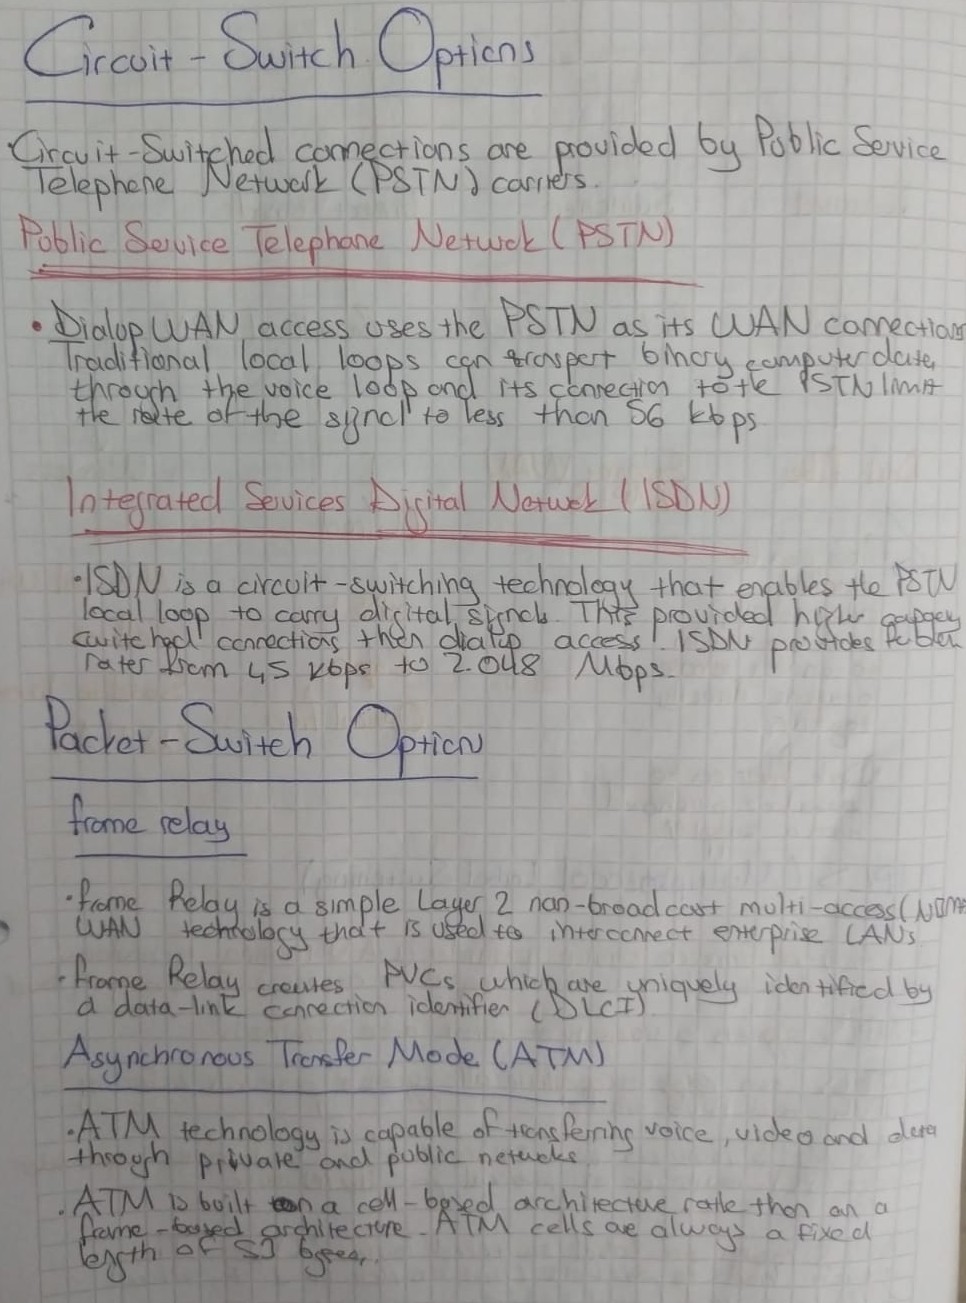 Circuit-Switch Options
Circuit-Switched connections are provided by Public Service
Telephone Network (PSTN) carriers.
Public Service Telephone Netwok (PSTN)
• Dialup WAN access uses the PSTN as its WAN connection
Traditional local loops can transport binary computer data
through the voice loop and its connection to the PSTN limit
the rate of the signal to less than 56 kbps
Integrated Services Digital Netwok (ISDN)
• ISDN is a circuit-switching technology that enables the PSTN
local loop to carry digital signals. This provided higher capacity
switched connections then dialup access. ISDN provides for data
rates from 45 kbps to 2.048 Mbps.
Packet-Switch Option
frame relay
• frame Relay is a simple Layer 2 non-broadcast multi-access (NBMA
WAN technology that is used to interconnect enterprise LANs
• frame Relay creates PVCs which are uniquely identified by
a data-link connection identifier (DLCI)
Asynchronous Transfer Mode (ATM)
• ATM technology is capable of transferring voice, video and data
through private and public networks
• ATM is built on a cell-based architecture rather than on a
frame-based architecture. ATM cells are always a fixed
length of 53 bytes.